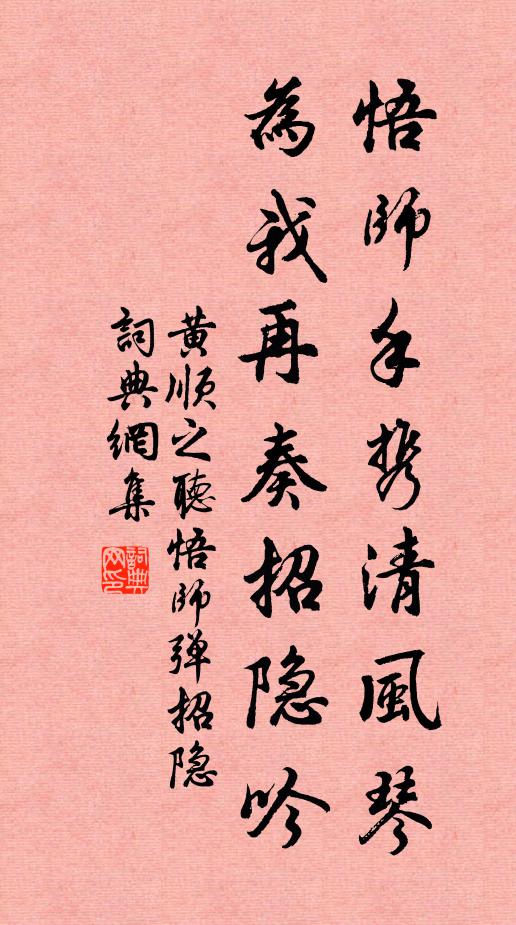 悟師手携清風琴
為我再奏招隐吟
黄順之聽悟師弹招隐
詞典網集
詞典網印